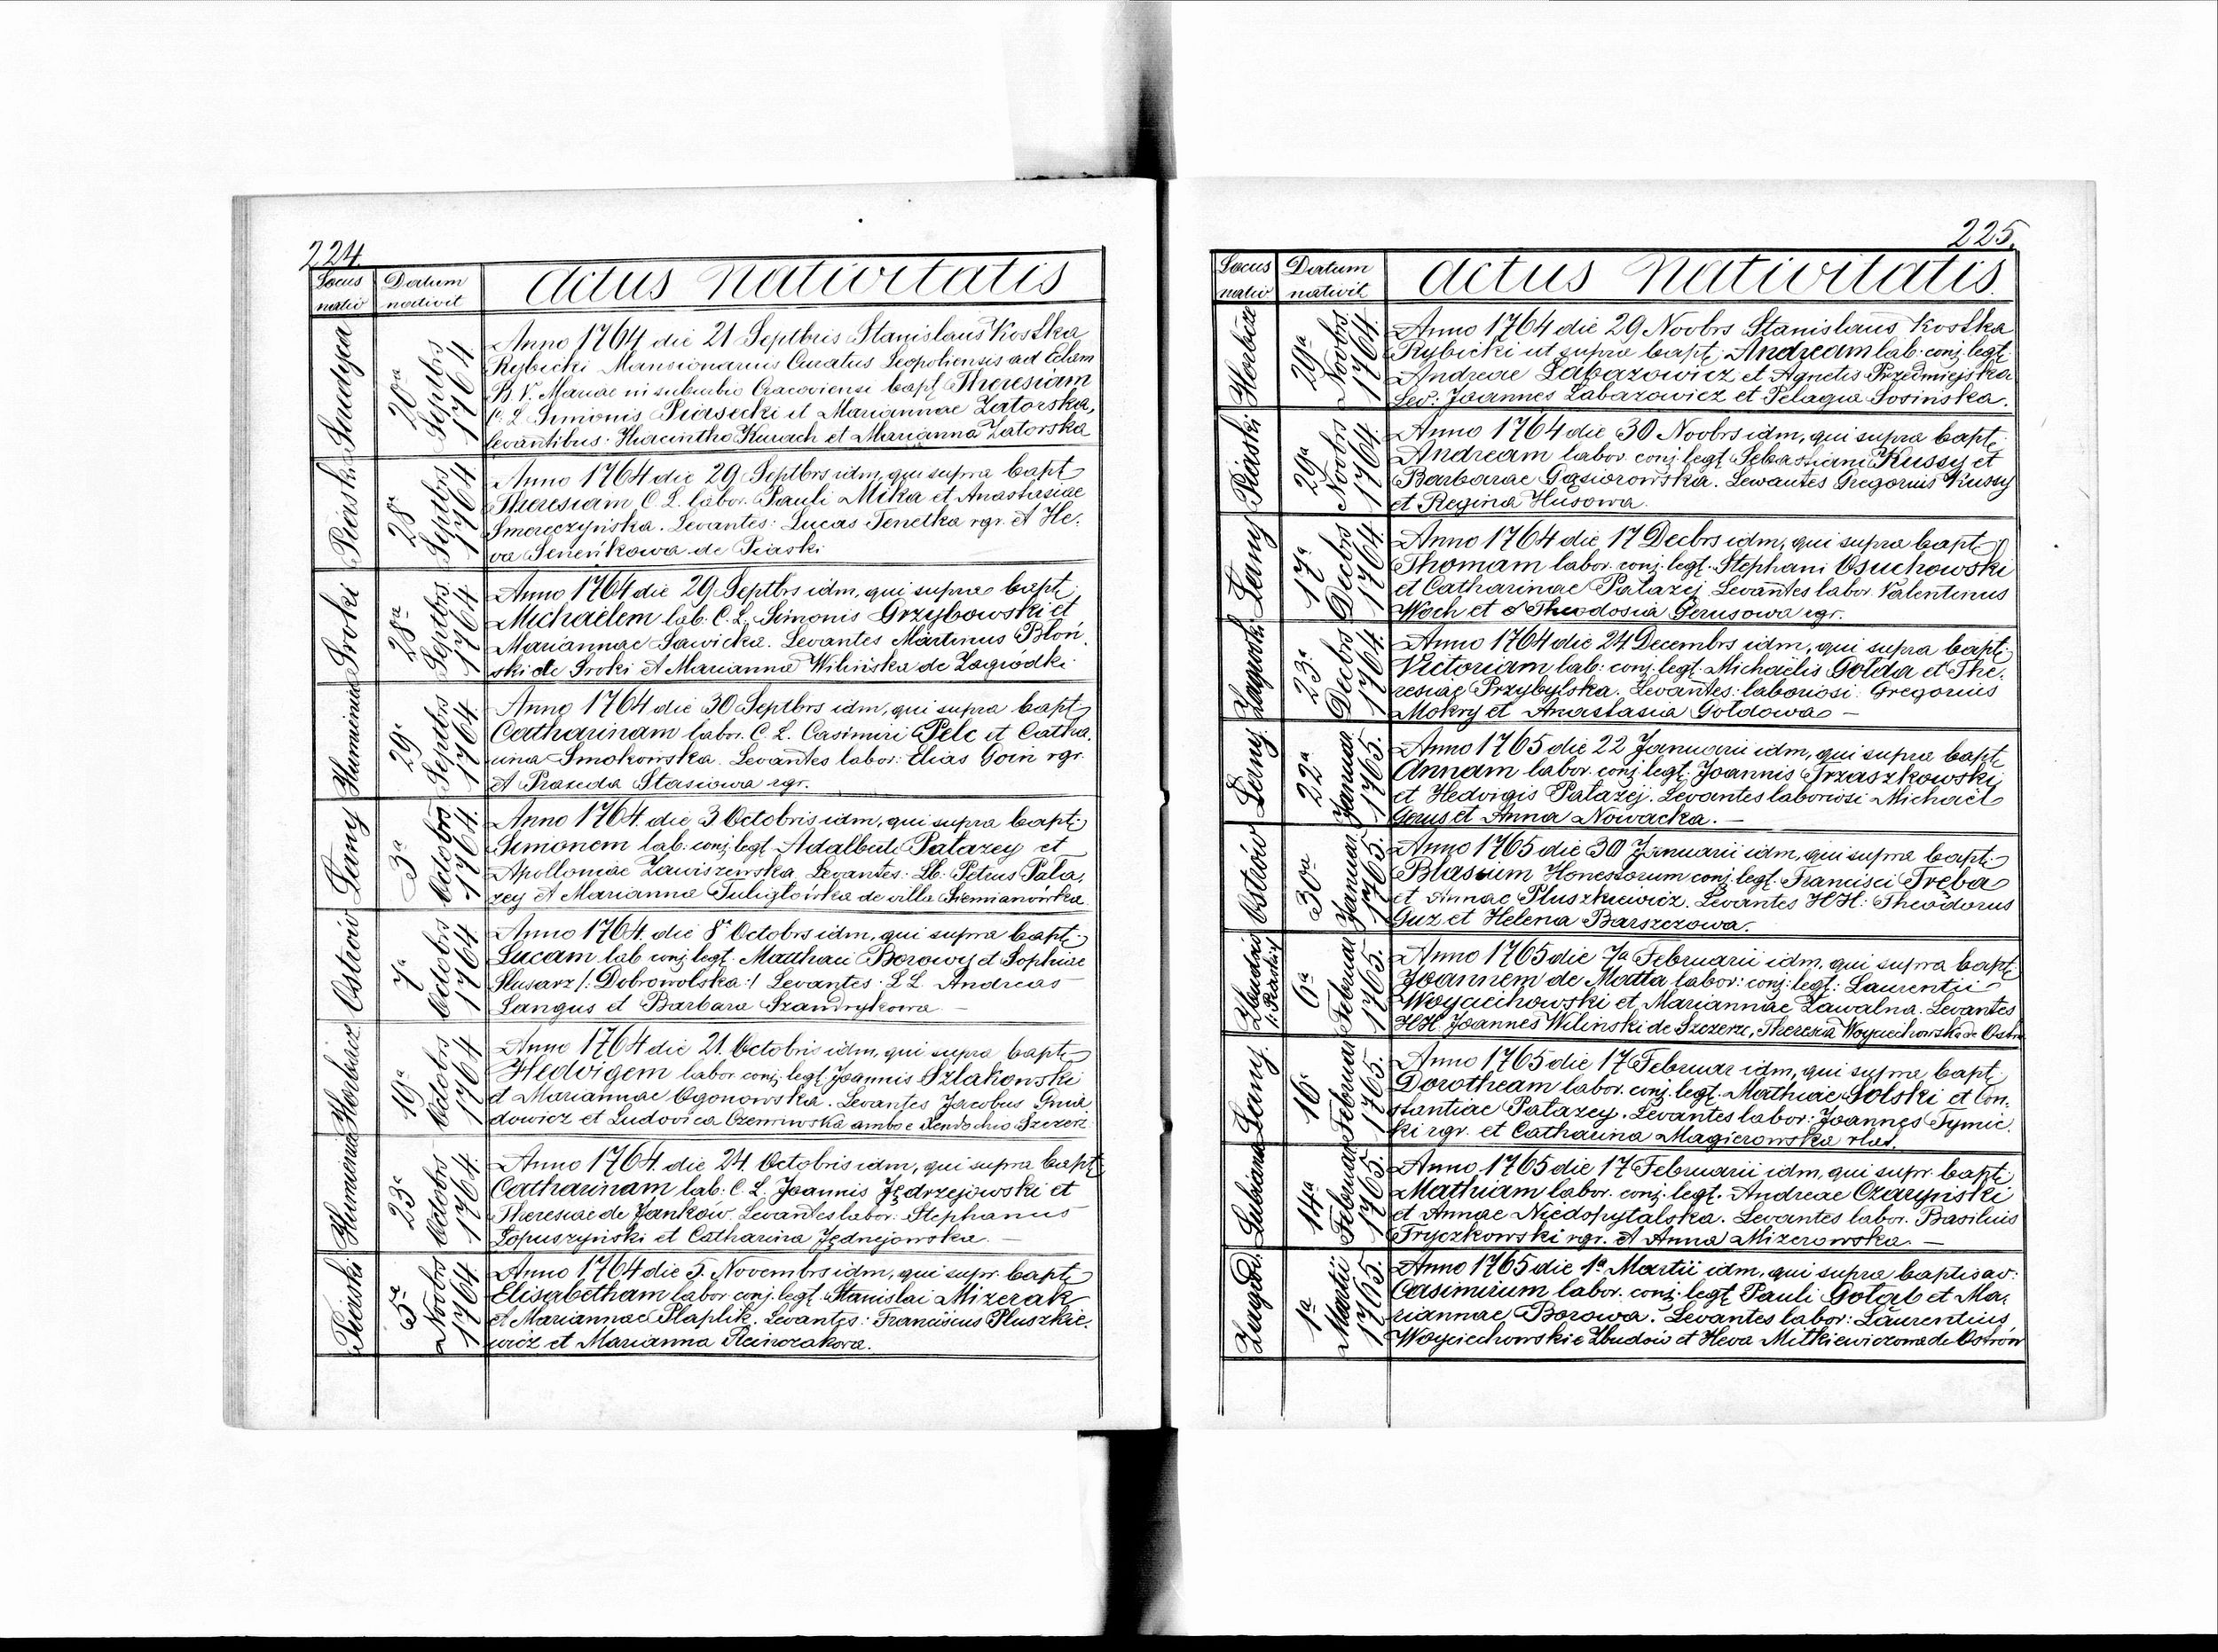 224.
Locus nativ
Datum nativit
Actus Nativitatis
20a Septbrs 1764
Anno 1764 die 21 Septbris Stanislaus Kostka
Rybicki Mansionarius Curatus Leopoliensis ad Eclam
B. V. Mariae in suburbio Cracoviensi bapt Theresiam
C. L. Simonis Piasecki et Mariannae Zatorska,
levantibus: Hiacintho Kusach et Marianna Zatorska
Piaski
28a Septbrs 1764
Anno 1764 die 29 Septbrs idm, qui supra bapt
Theresiam C. L. labor. Pauli Mika et Anastasiae
Smereczyńska. Levantes: Lucas Tenetka rgr. et He-
va Seneńkowa de Piaski
Sroki
28a Septbrs 1764
Anno 1764 die 29 Septbrs idm, qui supra bapt
Michaelem lab. C. L. Simonis Grzybowski et
Mariannae Sawicka. Levantes Martinus Błoń
ski de Sroki et Marianna Wilińska de Zagrodki
Humieniec
29a Septbrs 1764
Anno 1764 die 30 Septbrs idm, qui supra bapt
Catharinam labor. C. L. Casimiri Pelc et Catha.
rina Smokowska. Levantes labor: Elias Goin rgr.
et Praxeda Stasiowa rgr.
Łany
3a Octobrs 1764.
Anno 1764. die 3 Octobris idm, qui supra bapt:
Simonem lab. conj. legt Adalberti Pałazey et
Apolloniae Zawiszewska. Levantes: Lb. Petrus Pała,
zey et Marianna Tuligłówska de villa Siemianówka
Ostrów
7a Octobrs 1764
Anno 1764. die 8a Octobrs idm, qui supra bapt:
Lucam lab. conj. legt. Matthaei Borowy et Sophiae
Slusarz /: Dobrowolska :/ Levantes: LL. Andreas
Langus et Barbara Szandrykowa —
Horbacz
19a Octobrs 1764
Anno 1764 die 21. Octobris idm, qui supra bapt
Hedvigem labor conj. legt Joannis Szlakowski
et Mariannae Ogonowska. Levantes Jacobus Gnia
dowicz et Ludovica
Humieniec
23a Octobrs 1764.
Anno 1764. die 24. Octobris idm, qui supra bapt
Catharinam lab: C. L. Joannis Jędrzejowski et
Theresiae de Janków. Levantes labor: Stephanus
Łopuszyński et Catharina Jędrzejowska. —
Piaski
5a Novbrs 1764
Anno 1764 die 5. Novembrs idm, qui supr. bapt
Elisabetham labor conj. legt Stanislai Mizerak
et Mariannae Płaplik. Levantes: Franciscus Pluszkie-
wicz et Marianna
225.
Locus nativ
Datum nativit
Actus Nativitatis.
Horbacz
29a Novbrs 1764.
Anno 1764 die 29 Novbrs Stanislaus Kostka
Rybicki ut supra bapt. Andream lab. conj. legt:
Andreae Łabazowicz et Agnetis Przedmiejska
Lev: Joannes Łabazowicz et Pelagia Sosińska.
Piaski
29a Novbrs 1764
Anno 1764 die 30 Novbrs idm, qui supra bapt
Andream labor. conj. legt Sebastiani Kussy et
Barbarae Gąsiorowska. Levantes Gregorius Kussy
et Regina Husowa.
Łany
17a Decbrs 1764.
Anno 1764 die 17 Decbrs idm, qui supra bapt
Thomam labor. conj. legt. Stephani Osuchowski
et Catharinae Pałazej Levantes labor. Valentinus
Woch et Theodosia Gerusowa rgr.
Zagrodk:
23a Decbrs 1764.
Anno 1764 die 24 Decembrs idm, qui supra bapt:
Victoriam lab: conj. legt. Michaelis Gołda et The-
resiae Przybylska. Levantes: laboriosi: Gregorius
Mokry et Anastasia Gołdowa —
Łany
22a Januar. 1765.
Anno 1765 die 22 Januarii idm, qui supra bapt
Annam labor. conj. legt: Joannis Trzaszkowski
et Hedvigis Pałazej. Levantes laboriosi Michael
Gerus et Anna Nowacka. —
Ostrów
30a Januar. 1765.
Anno 1765 die 30 Januarii idm, qui supra bapt:
Blasium Honestorum conj. legt. Francisci Treba
et Annae Pluszkiewicz. Levantes HH: Theodorus
Guz et Helena Barszczowa.
6a Februar 1765.
Anno 1765 die 7a Februarii idm, qui supra bapt
Joannem de Matta labor: conj: legt: Laurentii
Woyciechowski et Mariannae Zawalna. Levantes
HH. Joannes Wilinski de Szczerz, Theresia Woyciechowska de Ostro
Łany
16a Februar 1765.
Anno 1765 die 17 Februar idm, qui supra bapt.
Dorotheam labor. conj. legt. Mathiae Solski et Con-
stantiae Pałazey. Levantes labor: Joannes Tymic.
ki rgr. et Catharina Magierowska rlat.
Lubiana
14a Februar 1765.
Anno 1765 die 17 Februarii idm, qui supr. bapt:
Mathiam labor. conj. legt. Andreae Czaryński
et Annae Niedopytalska. Levantes labor. Basilius
Tryczkowski rgr. et Anna Mizerowska. —
Zagród.
1a Martii 1765.
Anno 1765 die 1a Martii idm, qui supra baptisav:
Casimirum labor. conj. legt Pauli Gołąb et Ma,
riannae Borowa. Levantes labor: Laurentius
Woyciechowski e Zbudów et Heva Mitkiewiczowa de Ostrów